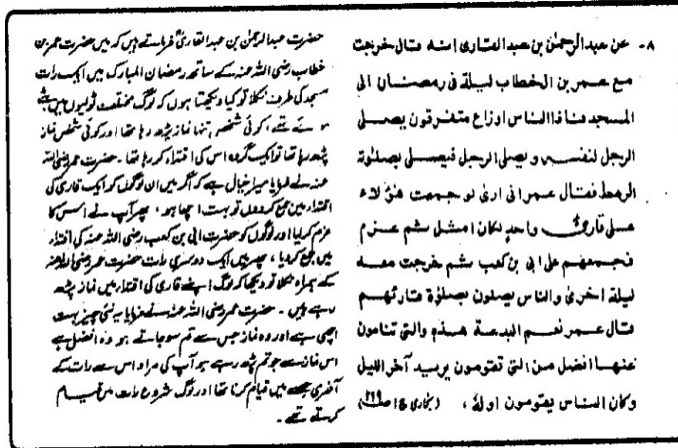 ۸۔ عن عبدالرحمٰن بن عبدالقاری انه قال خرجت
مع عمر بن الخطاب لیلة فی رمضان الی
المسجد فاذا الناس اوزاع متفرقون یصلی
الرجل لنفسه و یصلی الرجل فیصلی بصلوٰته
الرهط فقال عمر انی اری لو جمعت هٰؤلاء
علی قارئ واحد لکان امثل ثم عزم
فجمعهم علی ابی بن کعب ثم خرجت معه
لیلة اخریٰ والناس یصلون بصلوٰة قارئهم
قال عمر نعم البدعة هذه والتی تنامون
عنها افضل من التی تقومون یرید آخر اللیل
وکان الناس یقومون اوله ، (بخاری ج۱ ص۲۶۹)
حضرت عبدالرحمٰن بن عبدالقاریؒ فرماتے ہیں کہ میں حضرت عمر بن
خطاب رضی اللہ عنہ کے ساتھ رمضان المبارک میں ایک رات
مسجد کی طرف نکلا تو کیا دیکھتا ہوں کہ لوگ مختلف ٹولیوں میں بٹے
ہوئے تھے، کوئی شخص تنہا نماز پڑھ رہا تھا اور کوئی شخص نماز
پڑھ رہا تھا تو ایک گروہ اس کی اقتدا کر رہا تھا۔ حضرت عمر رضی اللہ
عنہ نے فرمایا میرا خیال ہے کہ اگر میں ان لوگوں کو ایک قاری کی
اقتداء میں جمع کردوں تو بہت اچھا ہو، پھر آپ نے اس کا
عزم کرلیا اور لوگوں کو حضرت ابی بن کعب رضی اللہ عنہ کی اقتداء
میں جمع کردیا، پھر میں ایک دوسری رات حضرت عمر رضی اللہ عنہ
کے ہمراہ نکلا تو دیکھا کہ لوگ اپنے قاری کی اقتداء میں نماز پڑھ
رہے ہیں۔ حضرت عمر رضی اللہ عنہ نے فرمایا یہ نئی چیز بہت
اچھی ہے اور وہ نماز جس سے تم سو جاتے ہو وہ افضل ہے
اس نماز سے جو تم پڑھ رہے ہو آپ کی مراد اس سے رات کے
آخری حصے میں قیام کرنا تھا اور لوگ شروع رات میں قیام
کرتے تھے۔